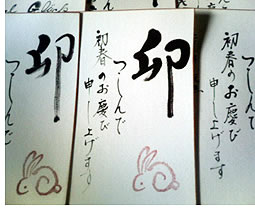 卯
つつしんで
初春のお慶び
申し上げます
卯
つつしんで
つつしんで
初春のお慶び
申し上げます